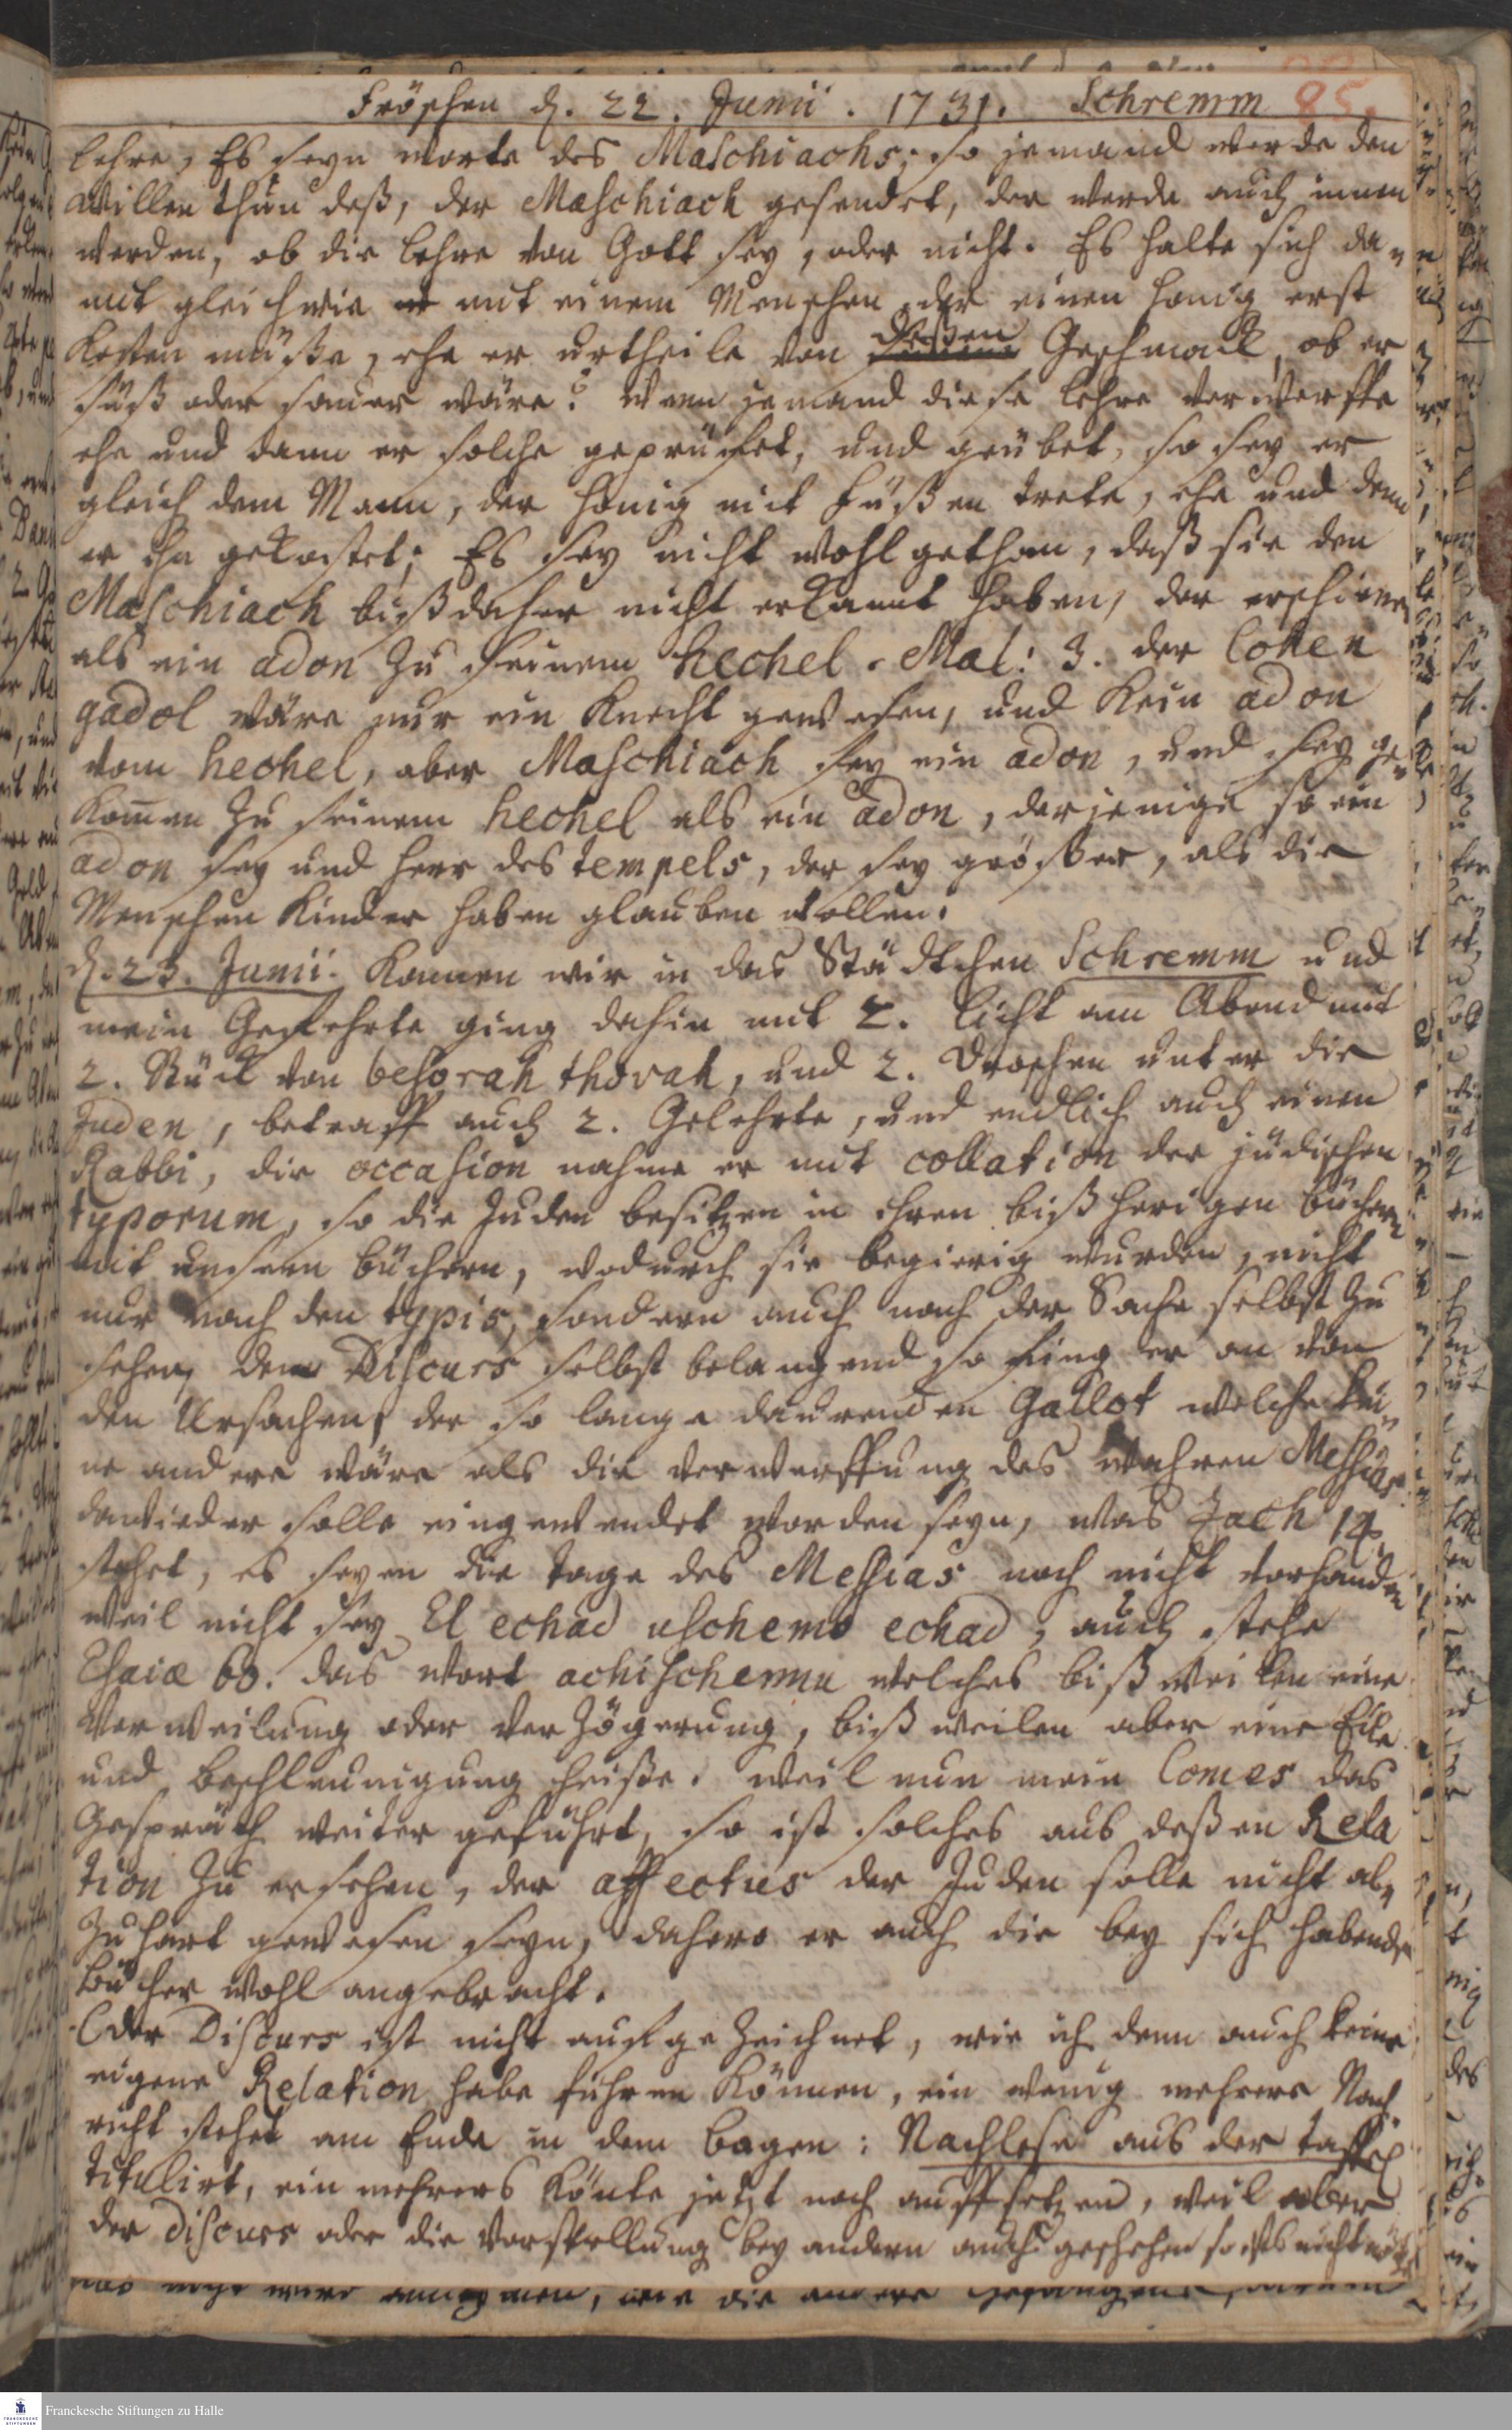 Fröschen d. 22. Junii. 1731. Schremm 85.
lehre, Es seyn worte des Maschiachs; so jemand werde den
Willen thun deß, der Maschiach gesendet, der werde auch innen
werden, ob die lehre von Gott sey, oder nicht. Es halte sich da-
mit gleichwie mit einem Menschen, der einen honig erst
kosten müße, ehe er urtheile von deßen Geschmack, ob er
süß oder sauer wäre? Wenn jemand diese lehre verwerffe
ehe und dann er solche geprüfet, und geübet, so sey er
gleich dem Mann, der honig mit füßen trete, ehe und denn
er ihn gekostet; Es sey nicht wohl gethan, daß sie den
Maschiach bißdaher nicht erkannt haben, der erschienen
als ein adon zu seinem hechel. Mal: 3. der Cohen
gadol wäre nur ein Knecht gewesen, und kein adon
vom hechel, aber Maschiach sey ein adon, und sey ge-
kom̄en zu seinem hechel als ein adon, derjenige so ein
adon sey und herr des tempels, der sey größer, als die
Menschen Kinder haben glauben wollen.
d. 23. Junii. kamen wir in das Städtchen Schremm und
mein Gefehrte ging dahin mit 2. licht am Abend mit
2. Stück von besorah thorah, und 2. Droschen unter die
Juden, betraff auch 2. Gelehrte, und endlich auch einen
Rabbi, die occasion nahme er mit collation der jüdischen
typorum, so die Juden besitzen in ihren bißherigen büchern
mit unsern büchern, wodurch sie begierig wurden, nicht
nur nach den typis, sondern auch nach der Sache selbst zu
sehen, den Discurs selbst belangend so fing er an von
den Ursachen, der so lange daurenden Gallot welche kei-
ne andere wäre als die verwerffung des wahren Messias
dawieder solle eingewendet worden seyn, was Zach 14.
stehet, es seyen die tage des Messias noch nicht vorhanden
weil nicht sey El echad uschemo echad, auch stehe
Esaiæ 60. das wort achischennu welches bißweilen eine
Verweilung oder Verzögerung, bißweilen aber eine Eile
und beschleunigung heiße. weil nun mein Comes das
Gespräch weiter geführt, so ist solches aus deßen Rela
tion zu ersehen, der affectus der Juden solle nicht al-
zuhart gewesen seyn, dahero er auch die bey sich habende
bücher wohl angebracht.
(der Discurs ist nicht auffgezeichnet, wie ich denn auch keine
eigene Relation habe führen können, ein wenig mehrere Nach
richt stehet am Ende in dem bogen: Nachlese aus der taffel
titulirt, ein mehrers könte jetzt noch auffsetzen, weil aber
der discurs oder die Vorstellung bey andern auch geschehen so ists nicht nöthig
die andere
Franckesche Stiftungen zu Halle